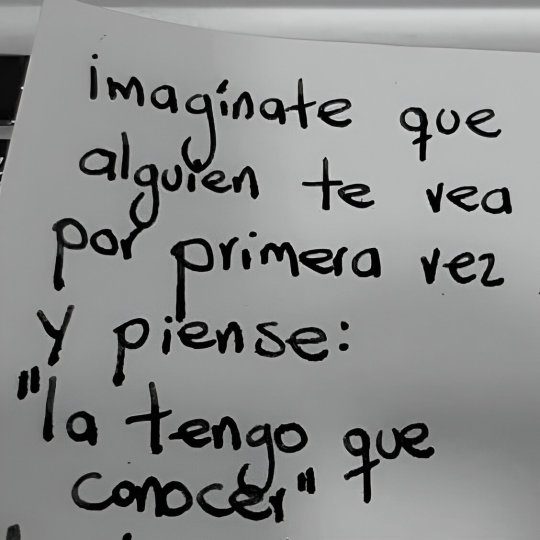 imagínate que
alguien te vea
por primera vez
y piense:
"la tengo que
conocer"